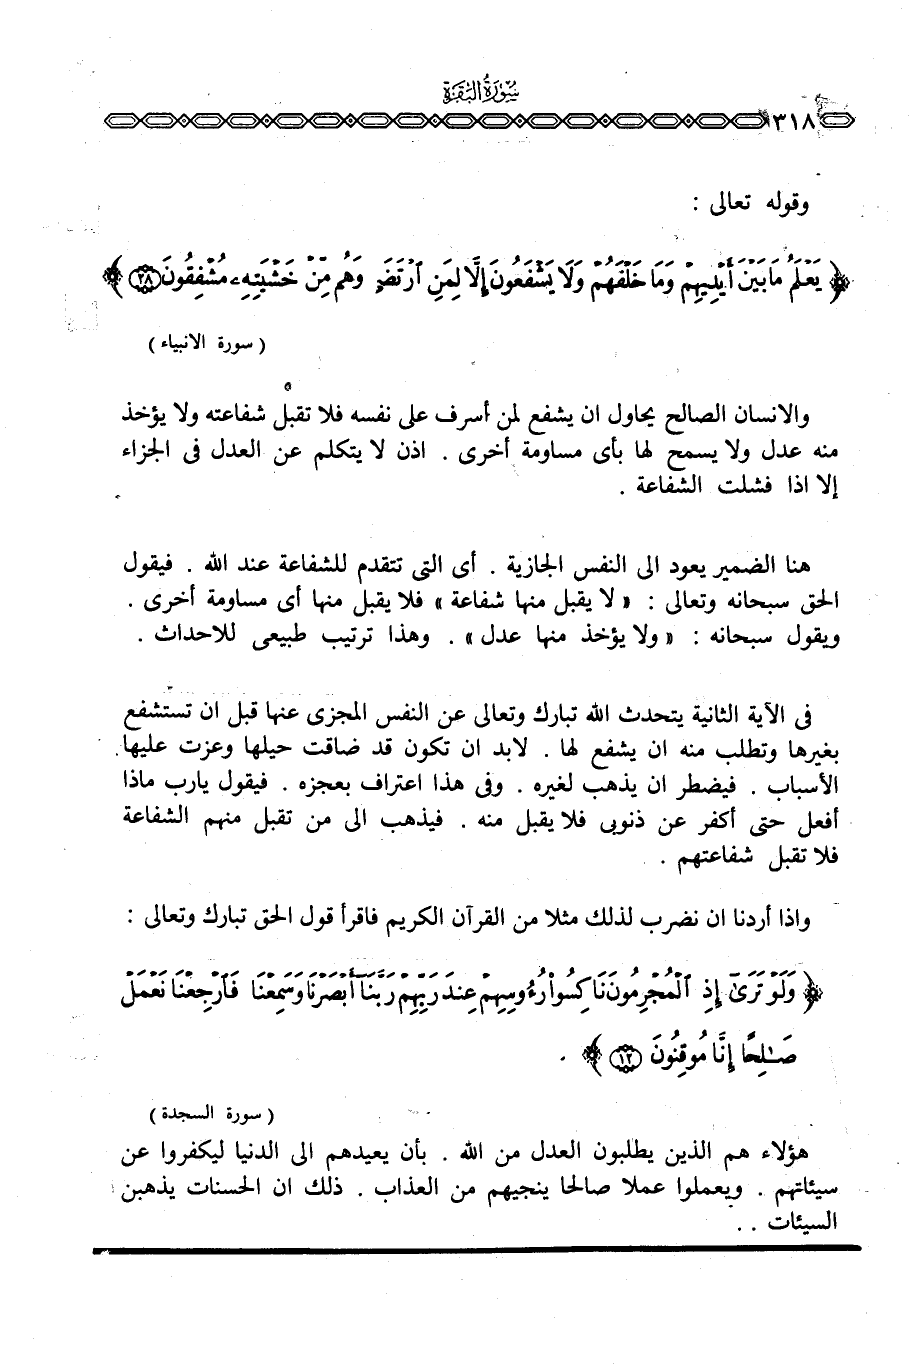 سورة البقرة
٣١٨
وقوله تعالى :
﴿ يَعْلَمُ مَا بَيْنَ أَيْدِيهِمْ وَمَا خَلْفَهُمْ وَلَا يَشْفَعُونَ إِلَّا لِمَنِ ٱرْتَضَىٰ وَهُم مِّنْ خَشْيَتِهِۦ مُشْفِقُونَ ٢٨ ﴾
( سورة الانبياء )
والانسان الصالح يحاول ان يشفع لمن أسرف على نفسه فلا تقبل شفاعته ولا يؤخذ
منه عدل ولا يسمح لها بأى مساومة أخرى . اذن لا يتكلم عن العدل فى الجزاء
إلا اذا فشلت الشفاعة .
هنا الضمير يعود الى النفس الجازية . أى التى تتقدم للشفاعة عند الله . فيقول
الحق سبحانه وتعالى : « لا يقبل منها شفاعة » فلا يقبل منها أى مساومة أخرى .
ويقول سبحانه : « ولا يؤخذ منها عدل » . وهذا ترتيب طبيعى للاحداث .
فى الآية الثانية يتحدث الله تبارك وتعالى عن النفس المجزى عنها قبل ان تستشفع
بغيرها وتطلب منه ان يشفع لها . لابد ان تكون قد ضاقت حيلها وعزت عليها
الأسباب . فيضطر ان يذهب لغيره . وفى هذا اعتراف بعجزه . فيقول يارب ماذا
أفعل حتى أكفر عن ذنوبى فلا يقبل منه . فيذهب الى من تقبل منهم الشفاعة
فلا تقبل شفاعتهم .
واذا أردنا ان نضرب لذلك مثلا من القرآن الكريم فاقرأ قول الحق تبارك وتعالى :
﴿ وَلَوْ تَرَىٰٓ إِذِ ٱلْمُجْرِمُونَ نَاكِسُوا۟ رُءُوسِهِمْ عِندَ رَبِّهِمْ رَبَّنَآ أَبْصَرْنَا وَسَمِعْنَا فَٱرْجِعْنَا نَعْمَلْ
صَـٰلِحًا إِنَّا مُوقِنُونَ ١٢ ﴾ .
( سورة السجدة )
هؤلاء هم الذين يطلبون العدل من الله . بأن يعيدهم الى الدنيا ليكفروا عن
سيئاتهم . ويعملوا عملا صالحا ينجيهم من العذاب . ذلك ان الحسنات يذهبن
السيئات . .